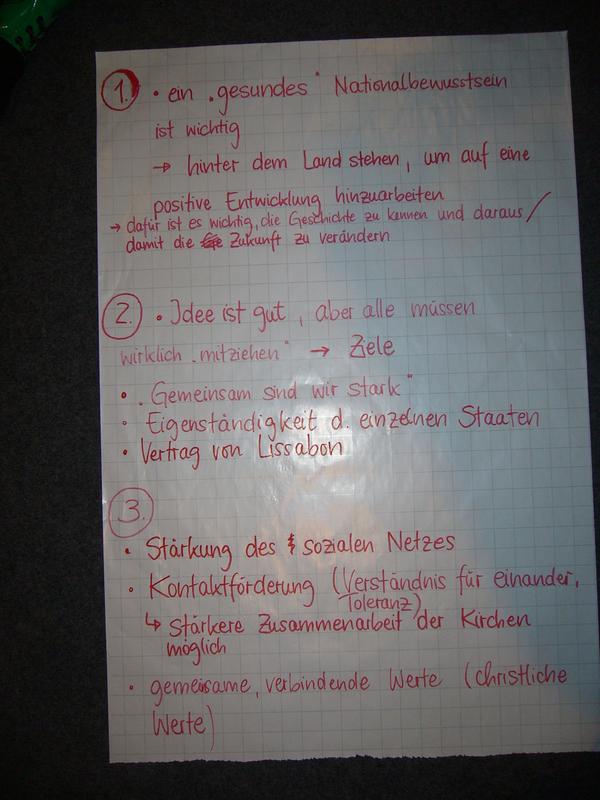 1. • ein „gesundes" Nationalbewusstsein
ist wichtig
→ hinter dem Land stehen, um auf eine
positive Entwicklung hinzuarbeiten
→ dafür ist es wichtig, die Geschichte zu kennen und daraus/
damit die Zukunft zu verändern
2. • Idee ist gut, aber alle müssen
wirklich „mitziehen" → Ziele
• „Gemeinsam sind wir stark"
• Eigenständigkeit d. einzelnen Staaten
• Vertrag von Lissabon
3.
• Stärkung des sozialen Netzes
• Kontaktförderung (Verständnis für einander,
Toleranz)
↳ stärkere Zusammenarbeit der Kirchen
möglich
• gemeinsame, verbindende Werte (christliche
Werte)